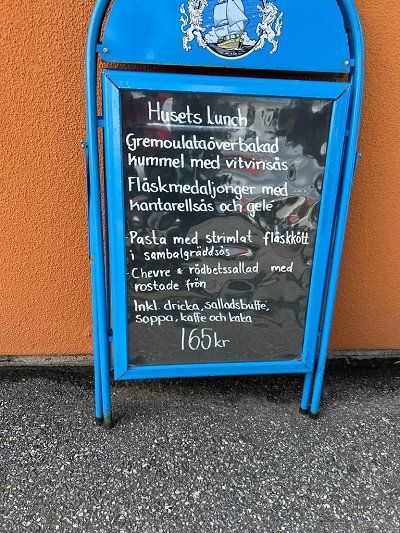 Husets Lunch
Gremoulataöverbakad
kummel med vitvinsås
Fläskmedaljonger med
kantarellsås och gele
- Pasta med strimlat fläskkött
i sambalgräddsås
- Chevre & rödbetssallad med
rostade frön
Inkl. dricka, salladsbuffe,
soppa, kaffe och kaka
165kr